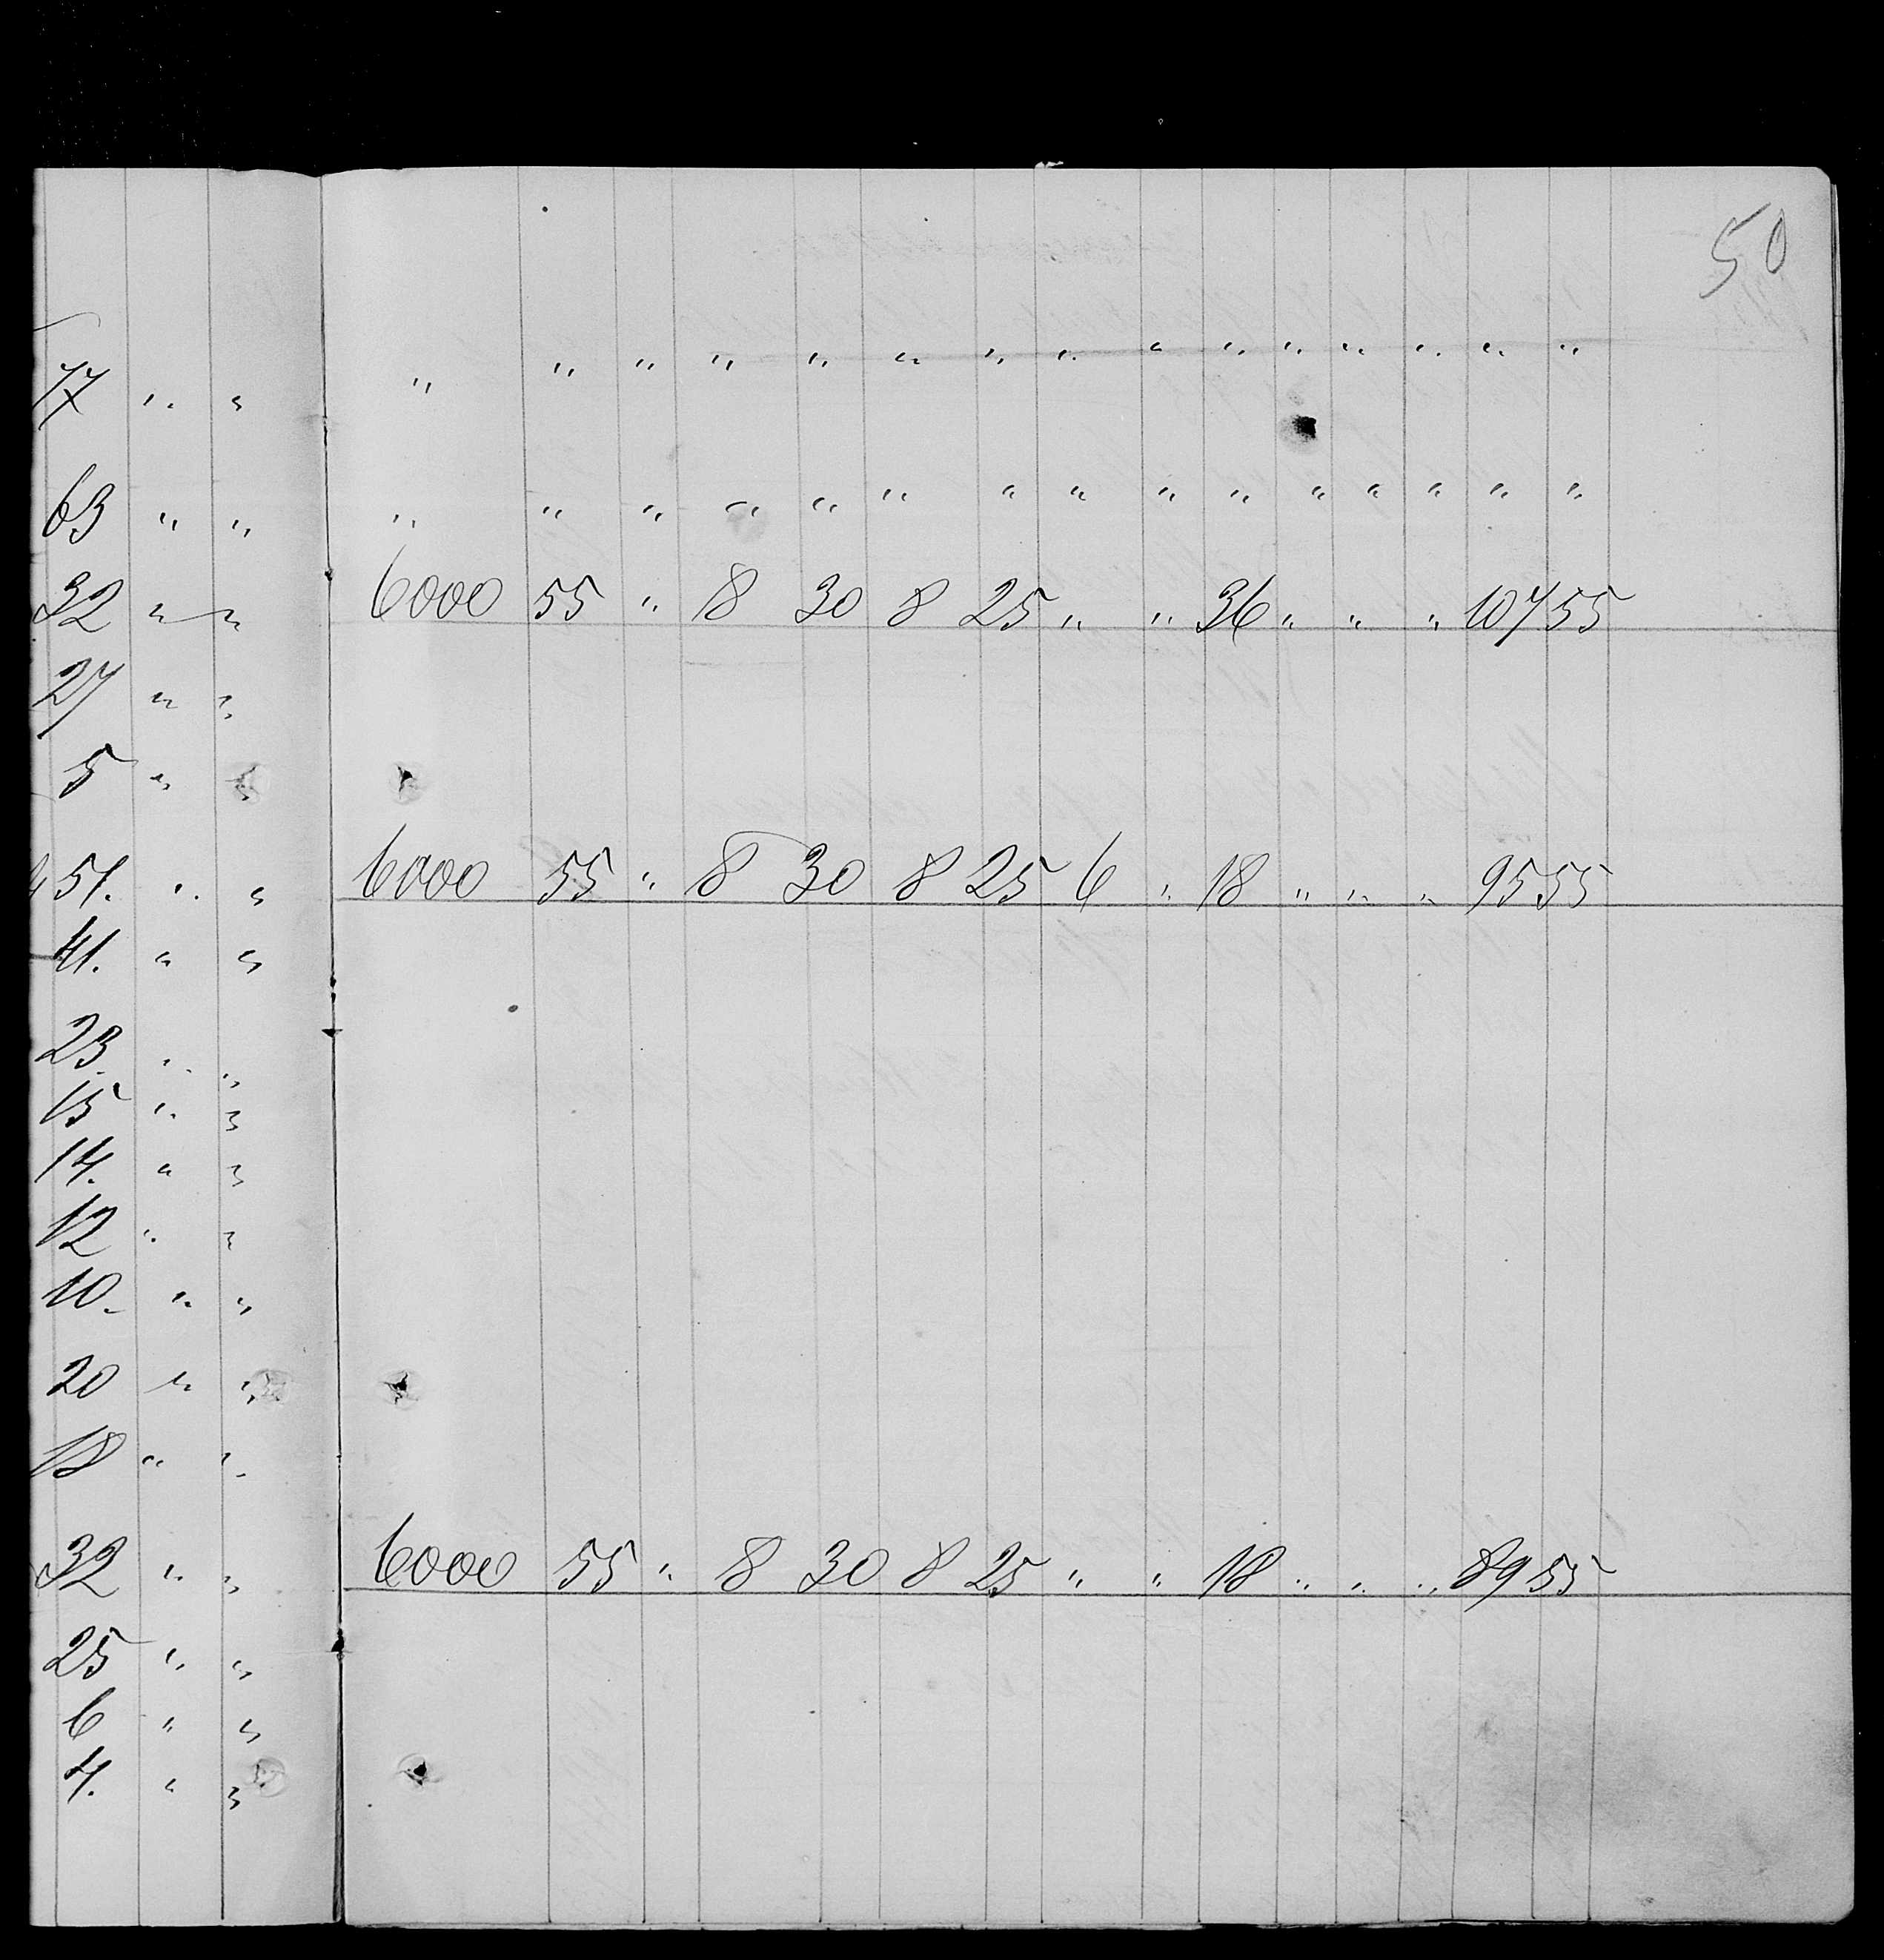 50
77 " " " " " " " " " " " " " " " " "
63 " " " " " " " " " " " " " " " " "
32 " " 6000 55 " 8 30 8 25 " " 36 " " " 107 55
27 " "
5 " "
51. " " 6000 55 " 8 30 8 25 6 " 18 " " " 95 55
41. " "
23. " "
15 " "
14. " "
12 " "
10. " "
20 " "
18 " "
32 " " 6000 55 " 8 30 8 25 " " 18 " " " 89 55
25 " "
6 " "
4. " "